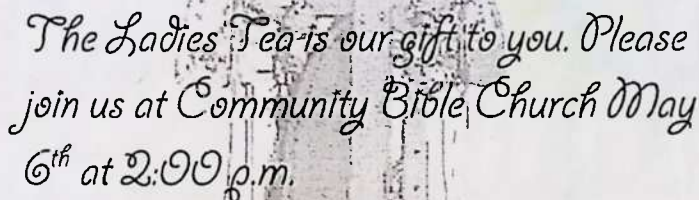 The Ladies Tea is our gift to you. Please
join us at Community Bible Church May
6th at 2:00 p.m.